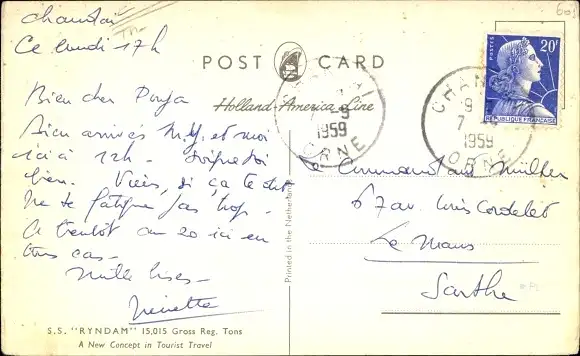 Chandai
Ce lundi 17h
POST CARD
Holland-America Line
Bien cher Pouja
Bien arrivés M.J. et moi
ici à 12h - Soigne toi
bien. Viens, si ça te dit
Ne te fatigue pas trop.
A bientôt au 20 ici en
tous cas -
Mille bises -
Ninette
S.S. "RYNDAM" 15,015 Gross Reg. Tons
A New Concept in Tourist Travel
Printed in the Netherlands
CHANDAI
7 -9
1959
ORNE
POSTES
20F
REPUBLIQUE FRANÇAISE
CHAN
9
7 -9
1959
ORNE
Commandant Muller
67 av. Louis Cordelet
Le Mans
Sarthe